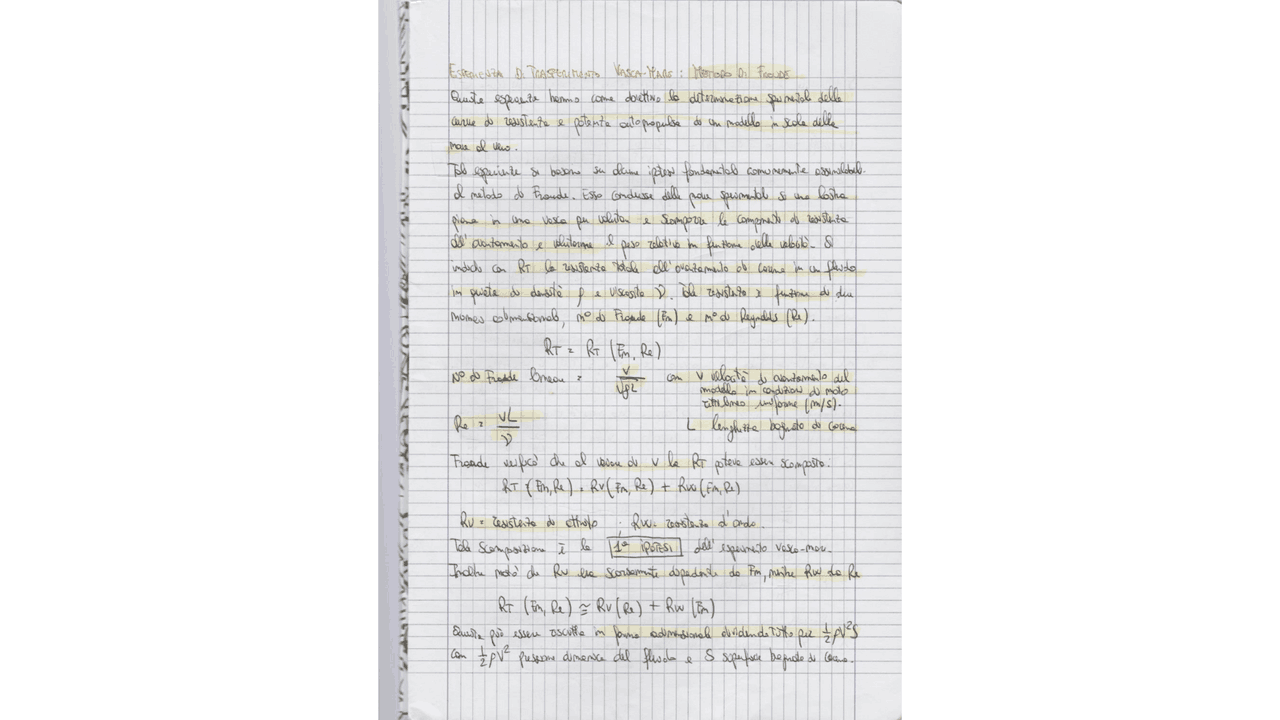 ESPERIENZA DI TRASFERIMENTO VASCA-MARE: METODO DI FROUDE
Queste esperienze hanno come obiettivo la determinazione sperimentale delle
curve di resistenza e potenza autopropulsa di un modello in scala della
nave al vero.
Tali esperienze si basano su alcune ipotesi fondamentali comunemente assimilabili
al metodo di Froude. Esso condusse delle prove sperimentali su una lastra
piana in una vasca per valutare e scomporre le componenti di resistenza
all'avanzamento e valutarne il peso relativo in funzione della velocità. Si
indichi con RT la resistenza totale all'avanzamento di carena in un fluido
in quiete di densità ρ e viscosità ν. Tale resistenza è funzione di due
numeri adimensionali, n° di Froude (Fn) e n° di Reynolds (Re).
RT = RT (Fn, Re)
N° di Froude lineare = V / √gL con V velocità di avanzamento del
modello in condizioni di moto
rettilineo uniforme (m/s).
Re = VL / ν L lunghezza bagnata di carena
Froude verificò che al variare di V la RT poteva essere scomposta:
RT (Fn, Re) = RV (Fn, Re) + RW (Fn, Re)
RV = resistenza di attrito ; RW = resistenza d'onda.
Tale scomposizione è la 1ª IPOTESI dell'esperimento vasca-mare.
Inoltre notò che RV era scarsamente dipendente da Fn, mentre RW da Re
RT (Fn, Re) ≅ RV (Re) + RW (Fn)
Questa può essere riscritta in forma adimensionale dividendo tutto per ½ρV²S
con ½ρV² pressione dinamica del fluido e S superficie bagnata di carena.